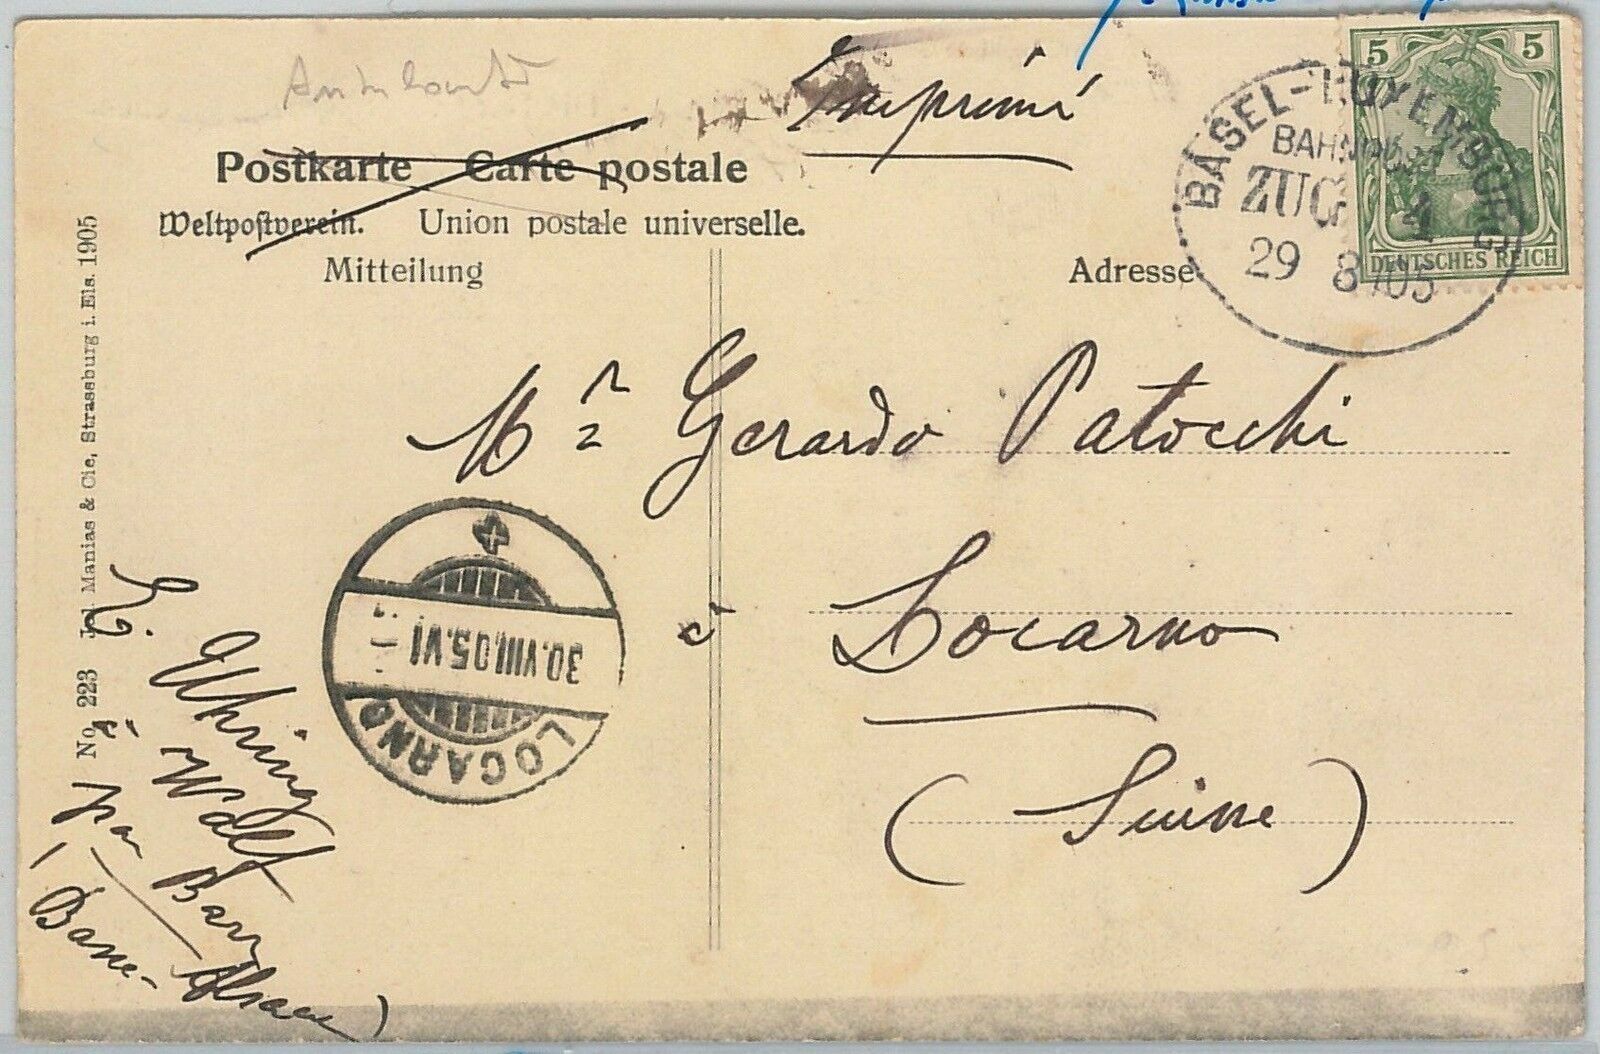 Imprimé
Postkarte Carte postale
Weltpostverein. Union postale universelle.
Mitteilung
Adresse
5 5
DEUTSCHES REICH
BASEL-LUXEMBURG
BAHNPOST
ZUG
29 8 05
Mr Gerardo Patocchi
à Locarno
(Suisse)
LOCARNO
30.VIII.05.VI
No. 223 Manias & Cie, Strassburg i. Els. 1905
E. Uhring
à Walf
par Barr
(Basse-Alsace)